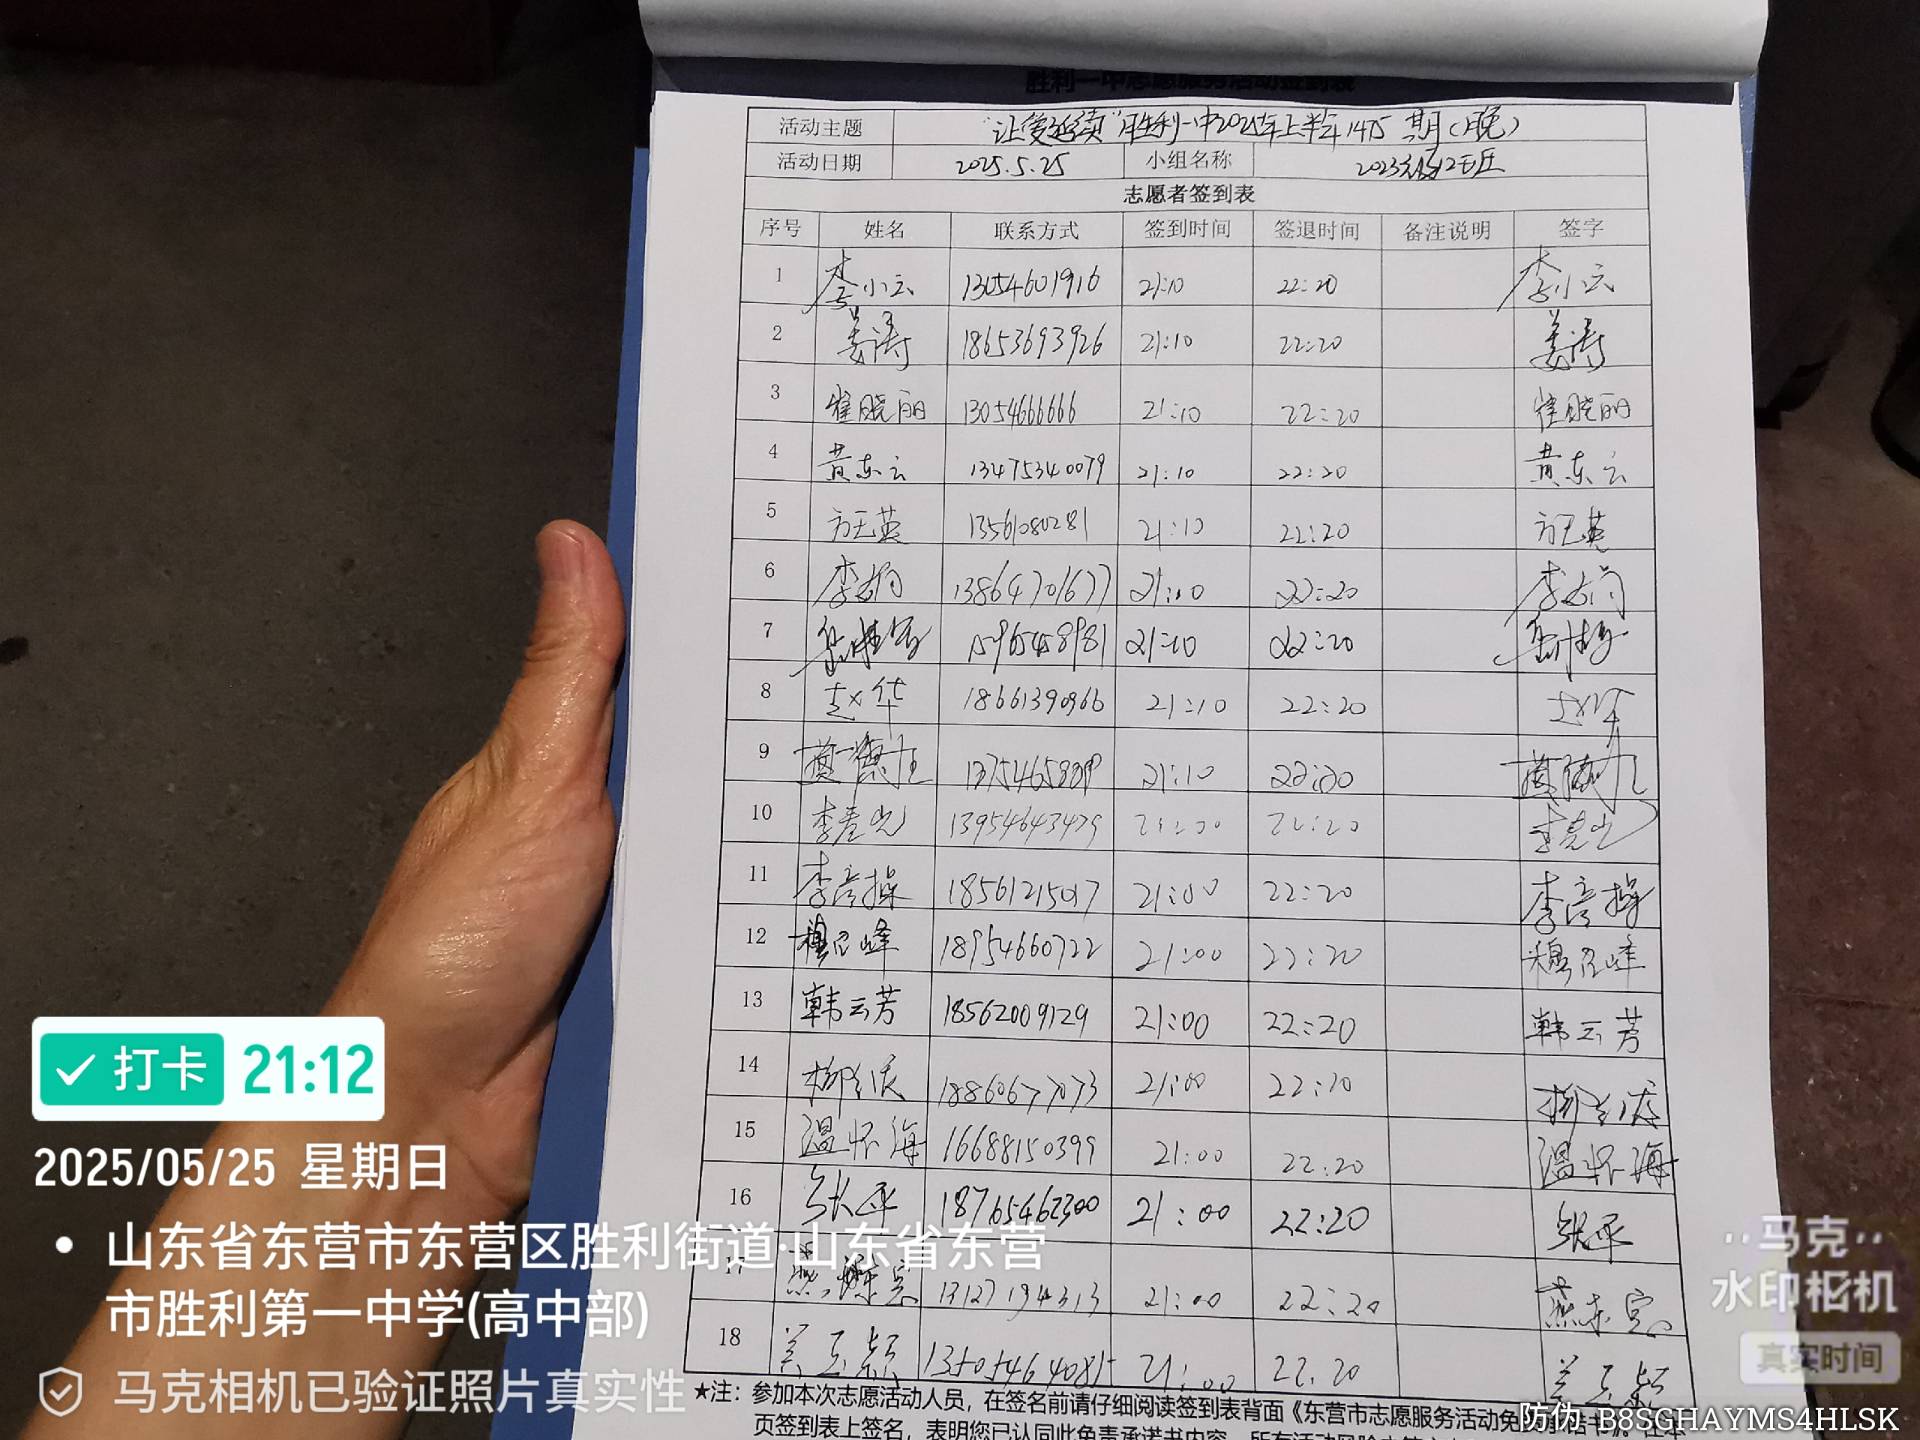 胜利一中志愿服务活动签到表
活动主题 “让爱延续”胜利一中2025年上半年1475期(晚)
活动日期 2025.5.25 小组名称
志愿者签到表
序号 姓名 联系方式 签到时间 签退时间 备注说明 签字
1 李小云 13054601916 21:10 22:20 李小云
2 姜涛 18653693926 21:10 22:20 姜涛
3 崔晓丽 13054666666 21:10 22:20 崔晓丽
4 黄东云 13475340079 21:10 22:20 黄东云
5 方玉英 1356080281 21:10 22:20 方玉英
6 李 13864701677 21:10 22:20 李
7 21:10 22:20
8 赵华 18661390966 21:10 22:20 赵华
9 21:10 22:20
10 李彦光 13954643479 22:20 李彦光
11 李彦操 18561215017 21:00 22:20 李彦操
12 穆 峰 18954660722 21:00 22:20 穆 峰
13 韩云芳 18562009129 21:00 22:20 韩云芳
14 柳 18860677073 21:00 柳
15 温怀海 16688150399 21:00 22:20 温怀海
16 张平 18765462300 21:00 22:20 张平
17 13127194313 21:00 22:20
18 21:00 22:20
★注：参加本次志愿活动人员，在签名前请仔细阅读签到表背面《东营市志愿服务活动免责承诺书》。在本
页签到表上签名，表明您已认同此免责承诺书内容
打卡 21:12
2025/05/25 星期日
山东省东营市东营区胜利街道·山东省东营
市胜利第一中学(高中部)
马克相机已验证照片真实性
马克
水印相机
真实时间
防伪 B8SGHAYMS4HLSK